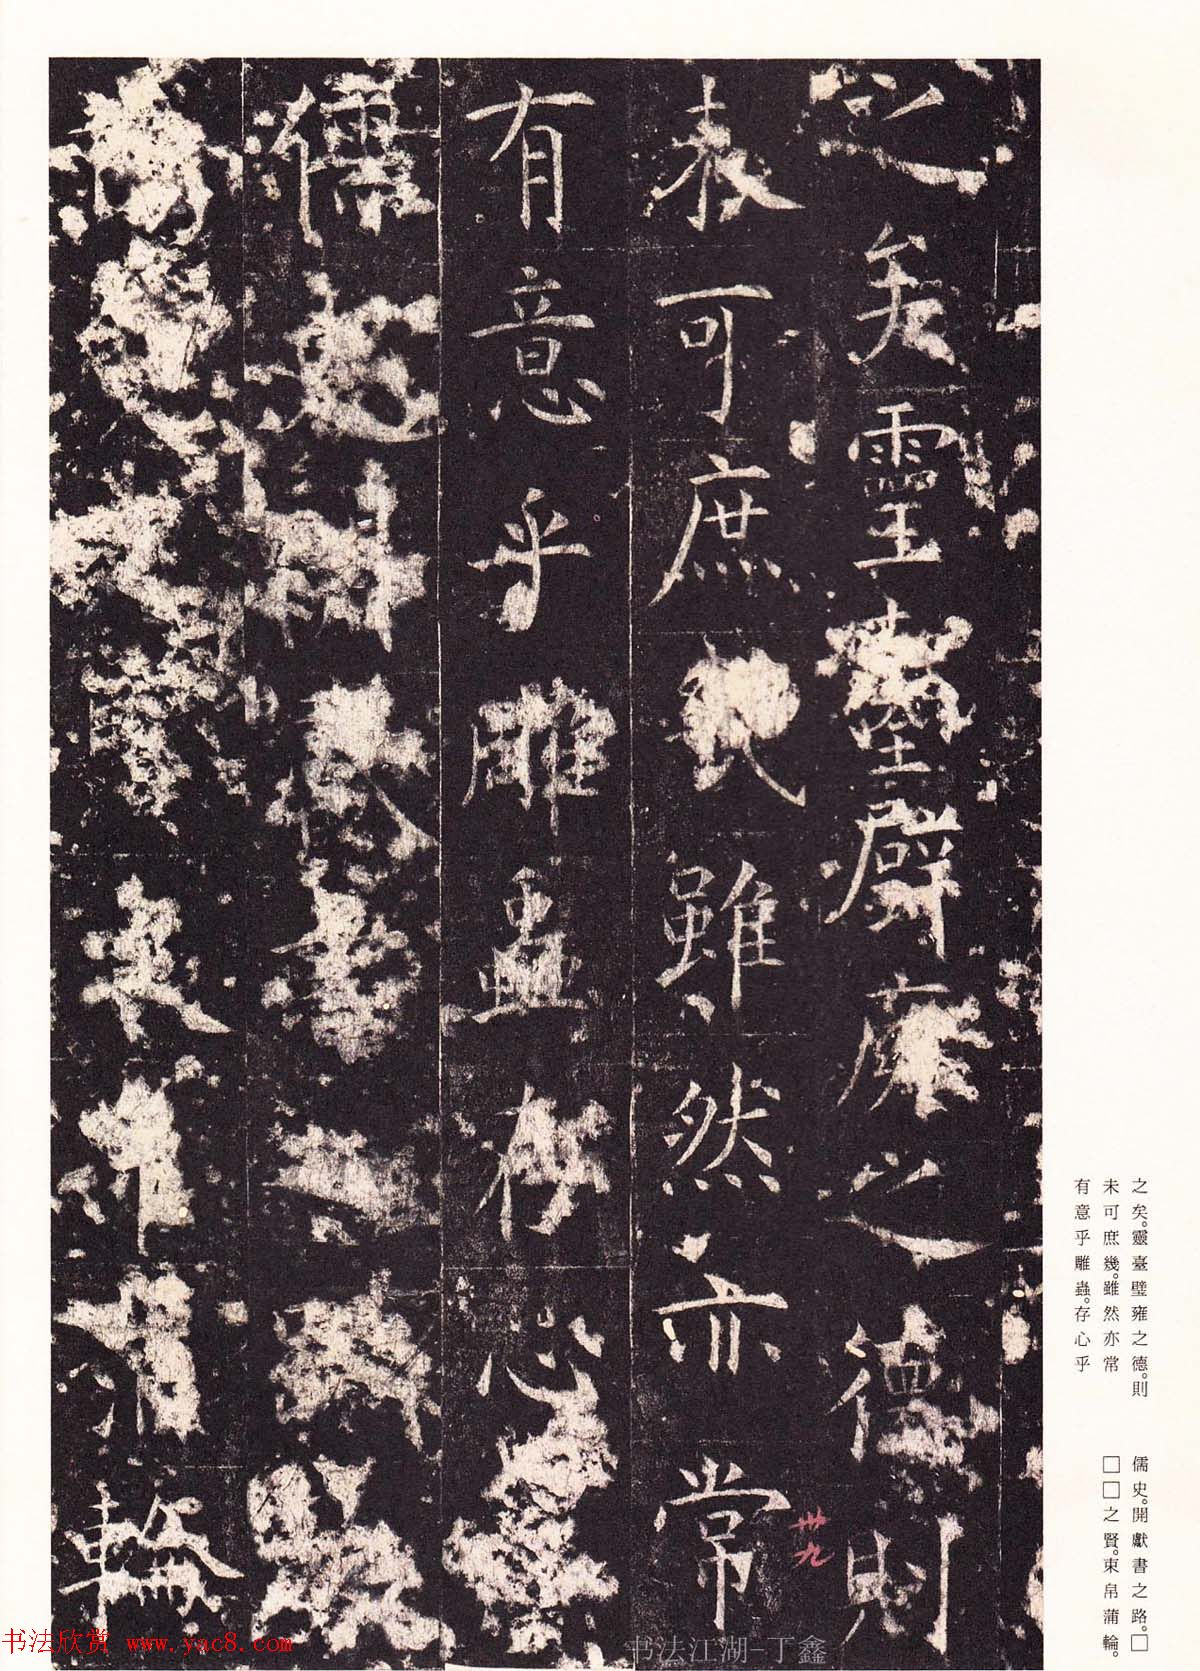 之矣靈臺璧雍之德則
未可庶幾雖然亦常
有意乎雕蟲存心乎
儒史開獻書之路
之賢束帛蒲輪
卅九
之矣。靈臺璧雍之德。則
未可庶幾。雖然亦常
有意乎雕蟲。存心乎
儒史。開獻書之路。□
□□之賢。束帛蒲輪。
书法欣赏 www.yac8.com
书法江湖-丁鑫